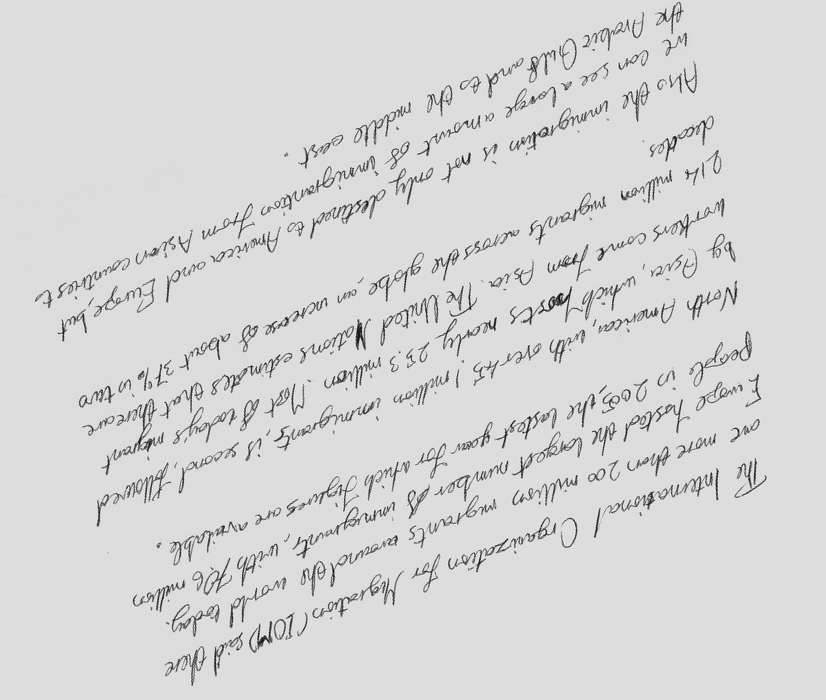 The International Organization for Migration (IOM) said there
are more than 200 million migrants around the world today.
Europe hosted the largest number of immigrants, with 70.6 million
people in 2005, the lastest year for which figures are available.
North America, with over 45.1 million immigrants, is second, followed
by Asia, which hosts nearly 25.3 million. Most of today's migrant
workers come from Asia. The United Nations estimates that there are
214 million migrants across the globe, an increase of about 37% in two
decades.
Also the immigration is not only destined to America and Europe, but
we can see a large amount of immigrantion from Asian countries to
the Arabic Gulf and to the middle east.